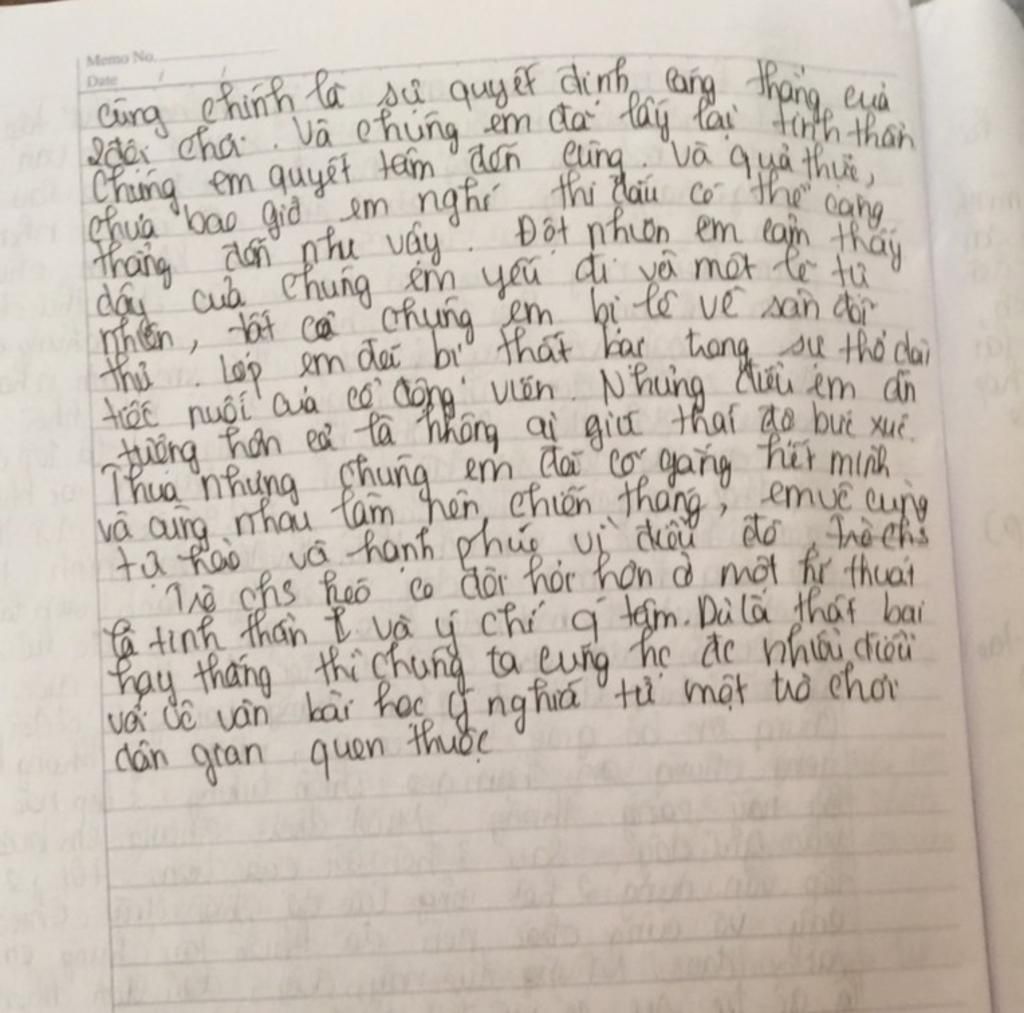 Memo No.
Date / /
cũng chính là sự quyết định căng thẳng của
2 đội chơi. Và chúng em đã lấy lại tinh thần
Chúng em quyết tâm đến cùng. Và quả thực,
chưa bao giờ em nghĩ thi đấu có thể căng
thẳng đến như vậy. Đột nhiên em cảm thấy
dây của chúng em yếu đi và một lẽ tự
nhiên, tất cả chúng em bị kéo về sân đối
thủ. Lớp em đã bị thất bại trong sự thở dài
tiếc nuối của cổ động viên. Nhưng điều em ấn
tượng hơn cả là không ai giữ thái độ bực xúc.
Thua nhưng chúng em đã cố gắng hết mình
và cùng nhau làm nên chiến thắng, em vô cùng
tự hào và hạnh phúc vì điều đó. Trò chs
Trò chs kéo co đòi hỏi hơn ở một kĩ thuật
là tinh thần t và ý chí q tâm. Dù là thất bại
hay thắng thì chúng ta cũng hc đc nhiều điều
với vô vàn bài học ý nghĩa từ một trò chơi
dân gian quen thuộc